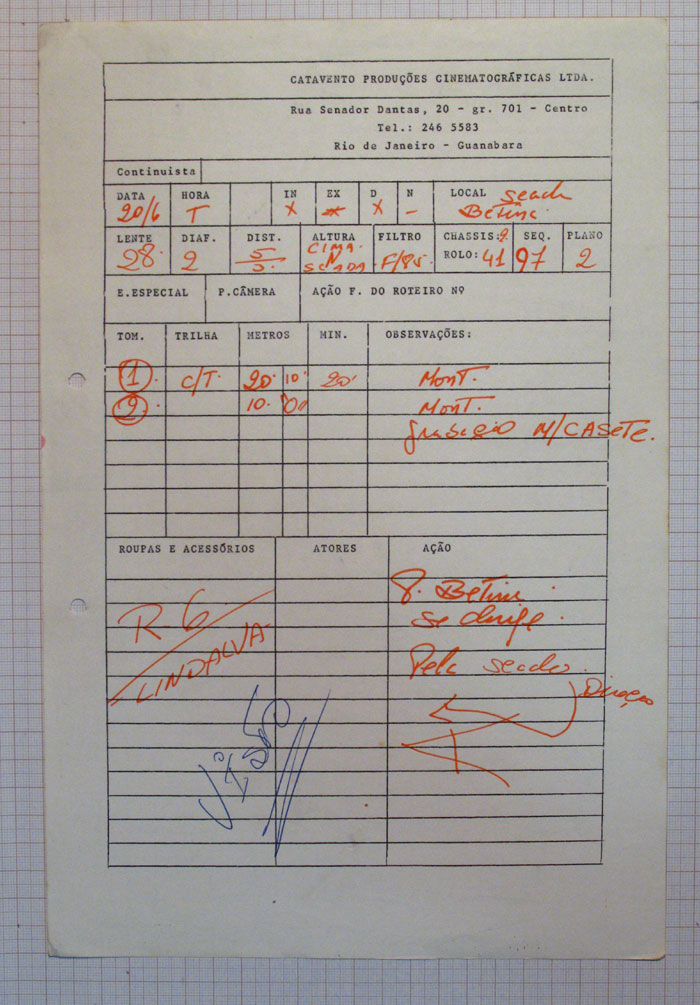 CATAVENTO PRODUÇÕES CINEMATOGRÁFICAS LTDA.
Rua Senador Dantas, 20 - gr. 701 - Centro
Tel.: 246 5583
Rio de Janeiro - Guanabara
Continuista
DATA HORA IN EX D N LOCAL
20/6 T X X X - Betina.
LENTE DIAF. DIST. ALTURA FILTRO CHASSIS: 2 SEQ. PLANO
28. 2 5 CIMA. F/85. ROLO: 41 97 2
E.ESPECIAL P.CÂMERA AÇÃO F. DO ROTEIRO Nº
TOM. TRILHA METROS MIN. OBSERVAÇÕES:
1. C/T. 20. 10. 20. Mont.
2. 10. 00 Mont.
M/CASETE.
ROUPAS E ACESSÓRIOS ATORES AÇÃO
R-6
LINDALVA.
Betina
se dirige.
Pela
Direção
Visão